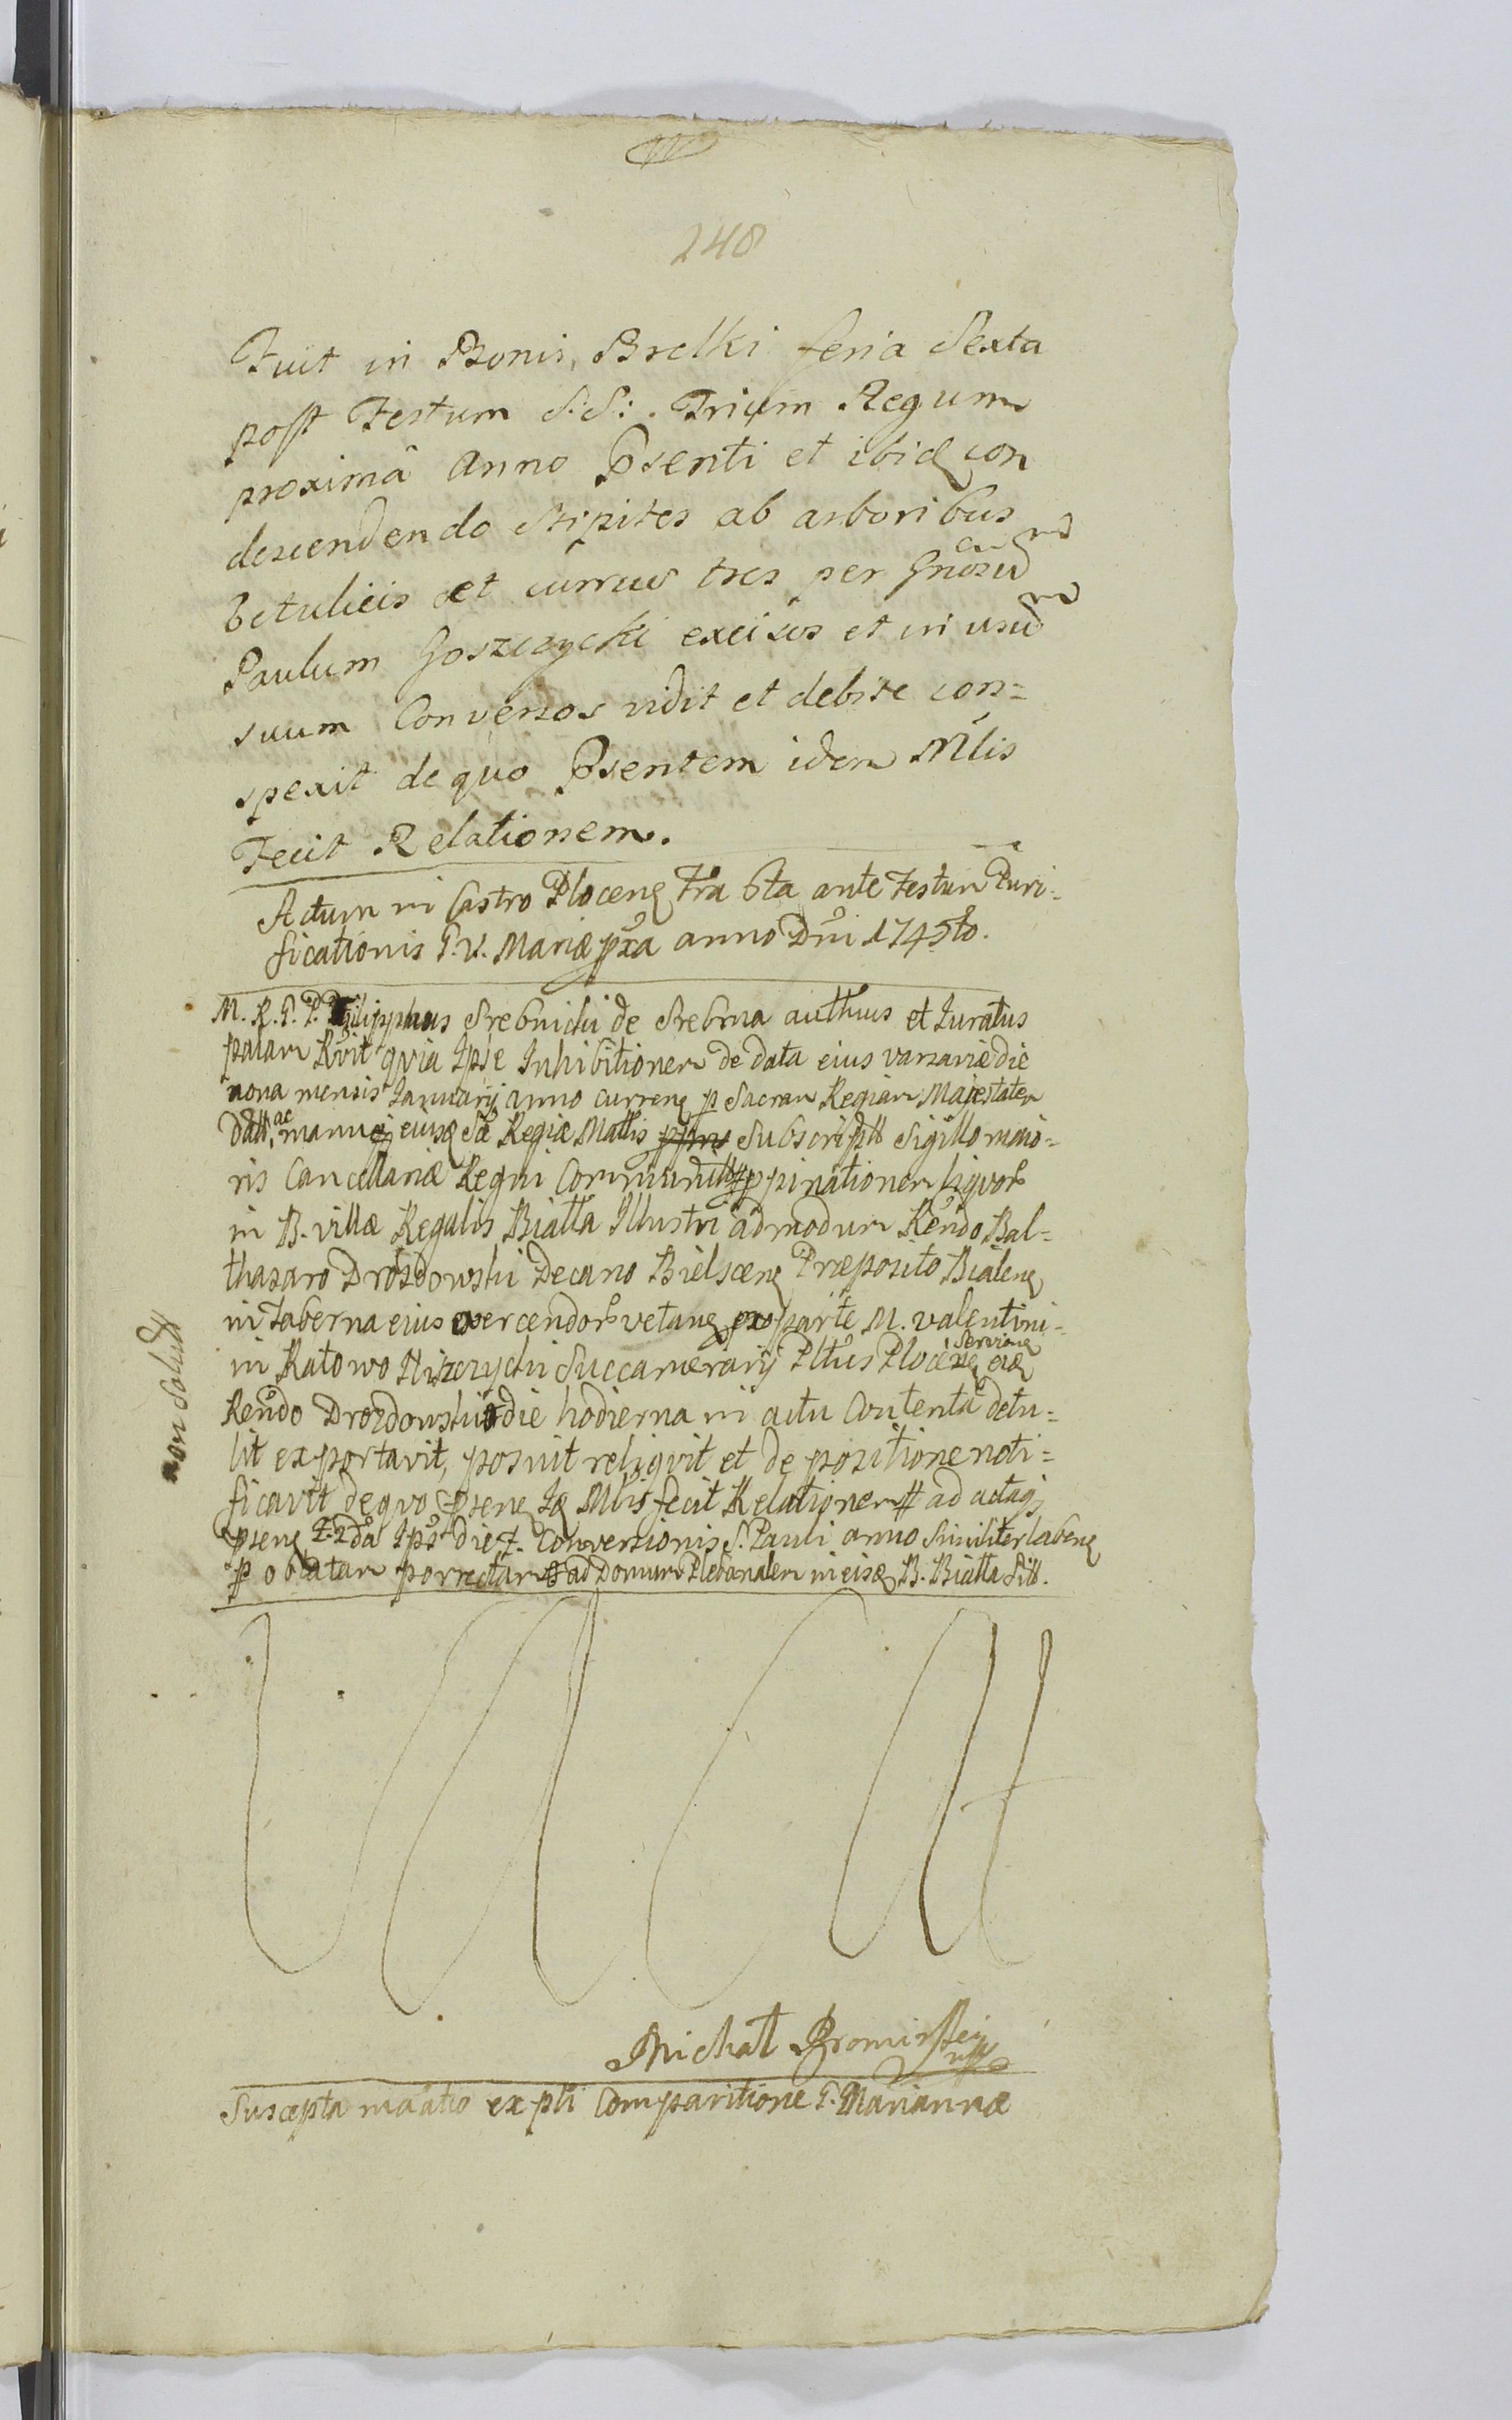 248
Fuit in Bonis, Brelki feria Sexta
post Festum S:S: Trium Regum
proximâ Anno Psenti et ibid con
descendendo Stipites ab arboribus
betulicis et currus tres per Gnosu
Paulum Goszczycki excisos et in usu
suum Conversos vidit et debite con=
spexit de quo Psentem idem Mlis
Fecit Relationem.
Actum in Castro Plocen Fra 6ta ante Festum Puri-
ficationis B.V. Mariæ pxa anno Dni 1745to.
M. R. G. P. Philipphus Srebnicki de Srebrna authus et Juratus
palam Rvit qvia Ipse Inhibitionem de data eius varsaviæ die
nona mensis Januarij anno curren p Sacram Regiam Majestatem
datt, ac manu eiusd Sæ Regiæ Mattis Subscriptt Sigillo maio=
ris Cancellariæ Regni Communitt ppinationem liqvor
in B. villæ Regalis Bialla Illustri admodum Rendo Bal=
thasaro Drozdowski Decano Bielscen Præposito Bialen
in Taberna eius exercendor vetan pro parte M. Valentini
in Ratowo Niszczycki Succamerarij Pltus Plocen Servien eid
Rendo Drozdowski die hodierna in actu Contenta detu=
lit exportavit, posuit reliqvit et de positione noti=
ficavit de qvo psen Id Mlis fecit Relationem # ad acta
psen F. 2da Ips die F. Conversionis S. Pauli anno Similiter laben
p oblatam porrectam # ad Domum Plebanalem in eisd B. Bialla Sitt.
non Solult
Michał
Suscepta maatio ex pti Comparitione G. Mariannæ